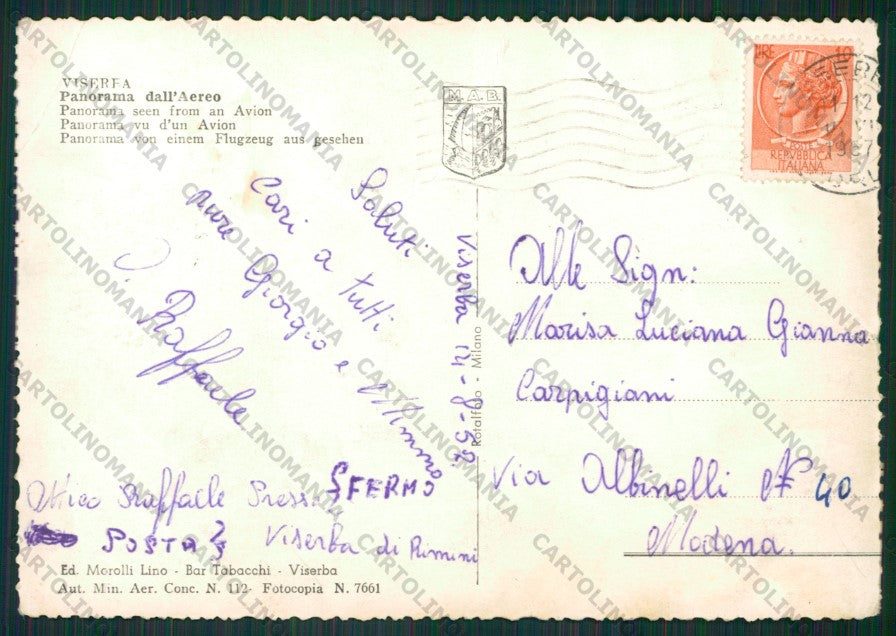 VISERBA
Panorama dall'Aereo
Panorama seen from an Avion
Panorama vu d'un Avion
Panorama von einem Flugzeug aus gesehen
M.A.B.
LIRE 10
POSTE
REPVBBLICA
ITALIANA
Saluti
Cari a tutti
pure Giorgio e Mimmo
Raffaele
Viserba 14-8-59
Rotalfoto - Milano
Alle Sign:
Marisa Luciana Gianna
Carpigiani
Via Albinelli N° 40
Modena.
Raffaele Presso SFERMO
POSTA Viserba di Rimini
Ed. Morolli Lino - Bar Tabacchi - Viserba
Aut. Min. Aer. Conc. N. 112- Fotocopia N. 7661
CARTOLINOMANIA